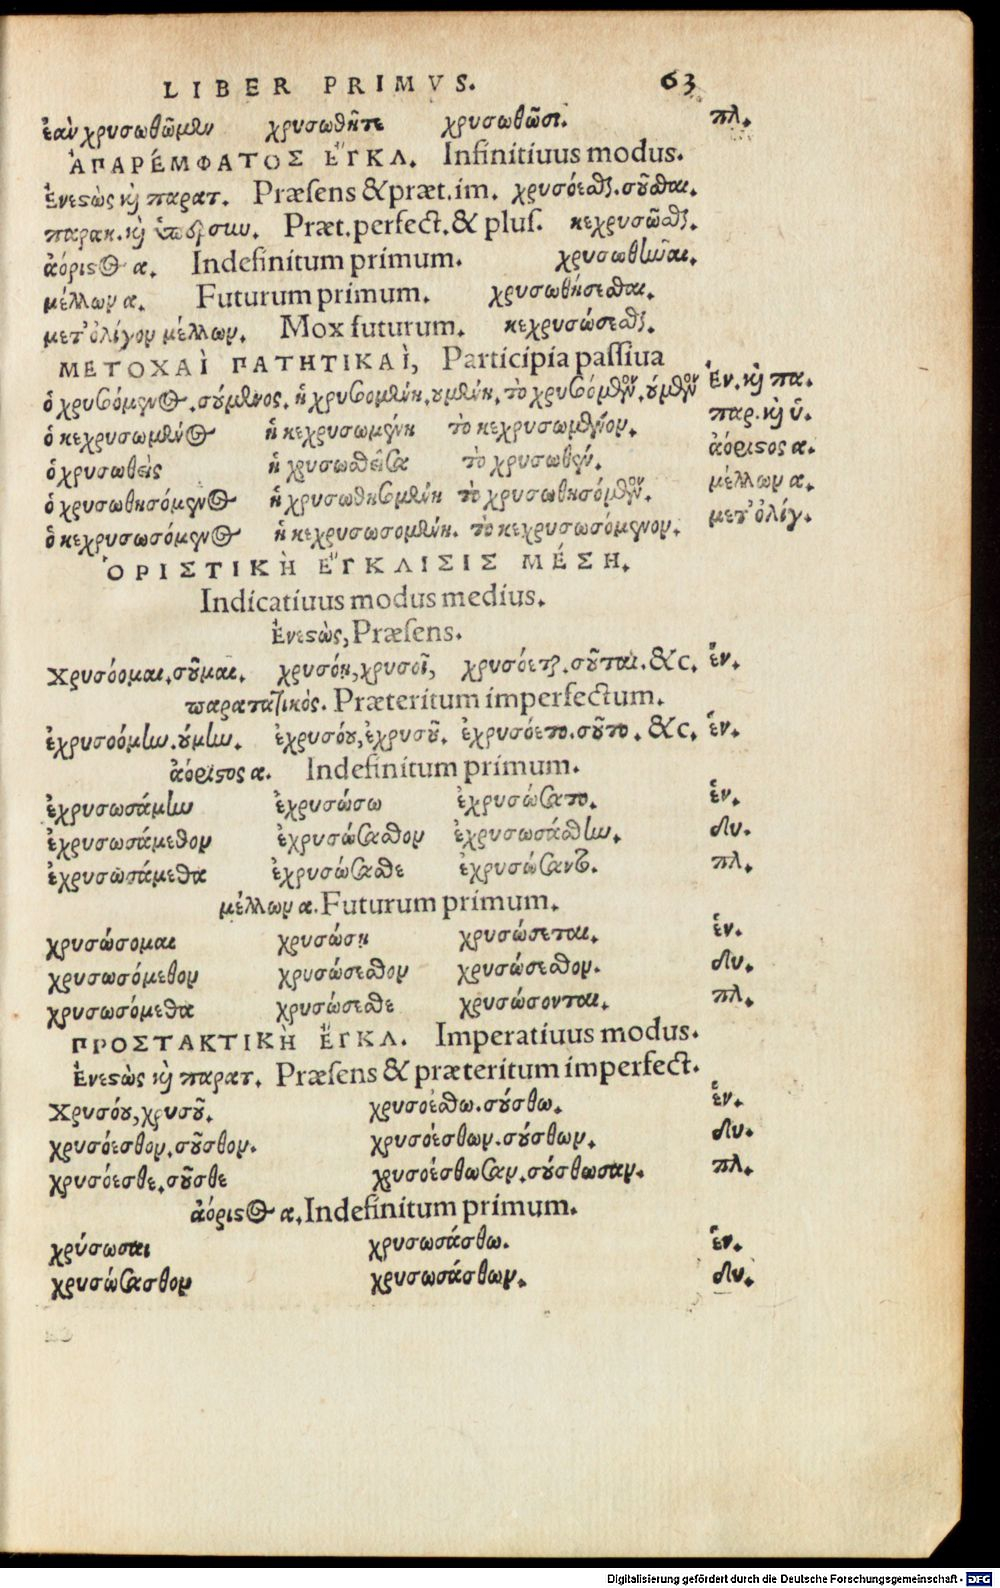 LIBER PRIMVS. 63
ἐὰν χρυσωθῶμεν χρυσωθῆτε χρυσωθῶσι. πλ.
ἈΠΑΡΈΜΦΑΤΟΣ ἜΓΚΛ. Infinitiuus modus.
Ἐνεστὼς καὶ παρατ. Præsens & præt. im. χρυσόεσθαι. σοῦσθαι.
παρακ. καὶ ὑπερσιω. Præt. perfect. & plus. κεχρυσῶσθαι.
ἀόριστος α. Indefinitum primum. χρυσωθῆναι.
μέλλων α. Futurum primum. χρυσωθήσεσθαι.
μετ' ὀλίγον μέλλων. Mox futurum. κεχρυσώσεσθαι.
ΜΕΤΟΧΑῚ ΠΑΤΗΤΙΚΑῚ, Participia passiua
ὁ χρυσόμενος. σούμενος. ἡ χρυσομένη. υμένη. τὸ χρυσόμενον. ύμενον Ἐν. καὶ πα.
ὁ κεχρυσωμένος ἡ κεχρυσωμένη τὸ κεχρυσωμένον. παρ. καὶ ὑ.
ὁ χρυσωθεὶς ἡ χρυσωθεῖσα τὸ χρυσωθέν. ἀόριστος α.
ὁ χρυσωθησόμενος ἡ χρυσωθησομένη τὸ χρυσωθησόμενον. μέλλων α.
ὁ κεχρυσωσόμενος ἡ κεχρυσωσομένη. τὸ κεχρυσωσόμενον. μετ' ὀλίγ.
ὉΡΙΣΤΙΚῊ ἜΓΚΛΙΣΙΣ ΜΈΣΗ.
Indicatiuus modus medius.
Ἐνεστὼς, Præsens.
Χρυσόομαι. σοῦμαι. χρυσόῃ, χρυσοῖ, χρυσόεται. σοῦται. &c. ἑν.
παρατατικός. Præteritum imperfectum.
ἐχρυσοόμην. ύμην. ἐχρυσόου, ἐχρυσοῦ. ἐχρυσόετο. σοῦτο. &c. ἑν.
ἀόριστος α. Indefinitum primum.
ἐχρυσωσάμην ἐχρυσώσω ἐχρυσώσατο. ἑν.
ἐχρυσωσάμεθον ἐχρυσώσασθον ἐχρυσωσάσθην. δυ.
ἐχρυσωσάμεθα ἐχρυσώσασθε ἐχρυσώσαντο. πλ.
μέλλων α. Futurum primum.
χρυσώσομαι χρυσώσῃ χρυσώσεται. ἑν.
χρυσωσόμεθον χρυσώσεσθον χρυσώσεσθον. δυ.
χρυσωσόμεθα χρυσώσεσθε χρυσώσονται. πλ.
ΠΡΟΣΤΑΚΤΙΚῊ ἜΓΚΛ. Imperatiuus modus.
Ἐνεστὼς καὶ παρατ. Præsens & præteritum imperfect.
Χρυσόου, χρυσοῦ. χρυσοέσθω. σούσθω. ἑν.
χρυσόεσθον. σοῦσθον. χρυσοέσθων. σούσθων. δυ.
χρυσόεσθε. σοῦσθε χρυσοέσθωσαν. σούσθωσαν. πλ.
ἀόριστος α. Indefinitum primum.
χρύσωσαι χρυσωσάσθω. ἑν.
χρυσώσασθον χρυσωσάσθων. δυ.
Digitalisierung gefördert durch die Deutsche Forschungsgemeinschaft - DFG